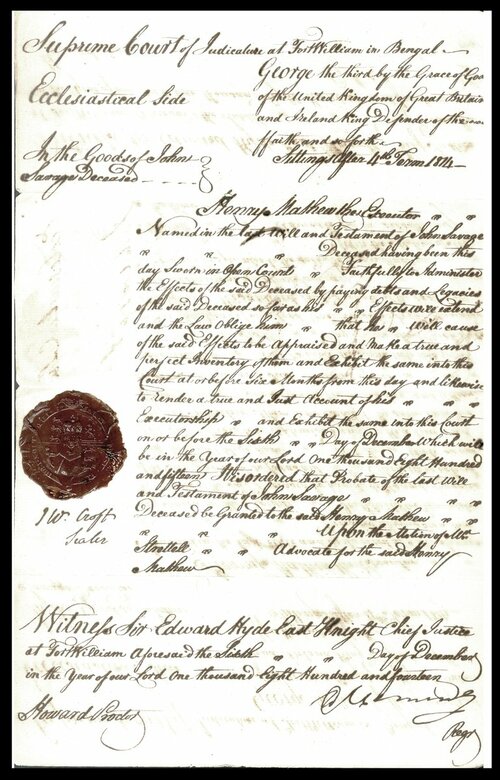 Supreme Court of Judicature at Fort William in Bengal
George the third by the Grace of God
Ecclesiastical Side
of the United Kingdom of Great Britain
and Ireland King Defender of the
ffaith and so forth
In the Goods of John
Savage Deceased
Sittings after 4th Term 1814
Henry Mathew the Executor
Named in the last Will and Testament of John Savage
Deceased having been this
day Sworn in Open Court Faithfully to Administer
the Effects of the said Deceased by paying debts and Legacies
of the said Deceased so far as his Effects will extend
and the Law Oblige him that he Will cause
of the said Effects to be Appraised and Make a true and
perfect Inventory of them and Exhibit the same into this
Court at or before Six Months from this day and likewise
to render a true and Just Account of his
Executorship and Exhibit the same into this Court
on or before the Sixth Day of December Which will
be in the Year of our Lord One thousand Eight Hundred
and fifteen It is ordered that Probate of the last Will
and Testament of John Savage
Deceased be Granted to the said Henry Mathew
Upon the Motion of Mr.
Strettell Advocate for the said Henry
Mathew
J Wm. Croft
Sealer
Witness Sir Edward Hyde East Knight Chief Justice
at Fort William Aforesaid the Sixth Day of December
in the Year of our Lord One thousand Eight Hundred and fourteen
Howard Proctor
Regr